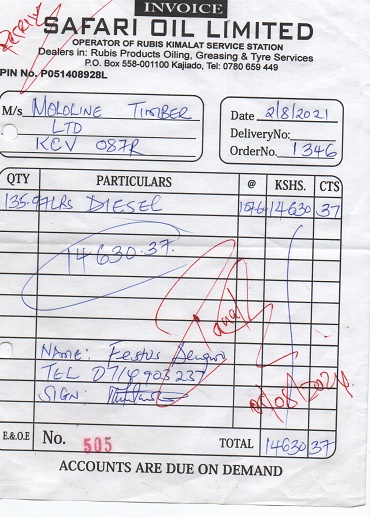 INVOICE
SAFARI OIL LIMITED
OPERATOR OF RUBIS KIMALAT SERVICE STATION
Dealers in: Rubis Products Oiling, Greasing & Tyre Services
P.O. Box 558-001100 Kajiado, Tel: 0780 659 449
PIN No. P051408928L
M/s MOLOLINE TIMBER
LTD
KCV 087R
Date 2/8/2021
DeliveryNo:
OrderNo. 1346
QTY PARTICULARS @ KSHS. CTS
135.97LRS DIESEL 107.6 14630 37
14630.37.
NAME: Festus
TEL 0714903237
SIGN:
E.&O.E No. 505 TOTAL 14630 37
ACCOUNTS ARE DUE ON DEMAND